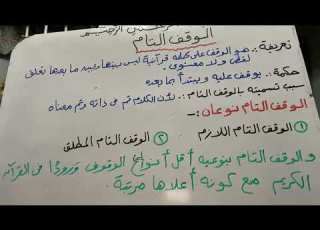 الوقف التام
تعريفه :. هو الوقف على كلمة قرآنية ليس بينها وبين ما بعدها تعلق
لفظي ولا معنوي
حكمه :. يوقف عليه و يبتدأ بما بعده
سبب تسميته بالوقف التام :. لأن الكلام تم في ذاته وتم معناه
الوقف التام نوعان :-
① الوقف التام اللازم ② الوقف التام المطلق
و الوقف التام بنوعيه أقل أنواع الوقوف ورودا من القرآن
الكريم مع كونه أعلاها مرتبة.